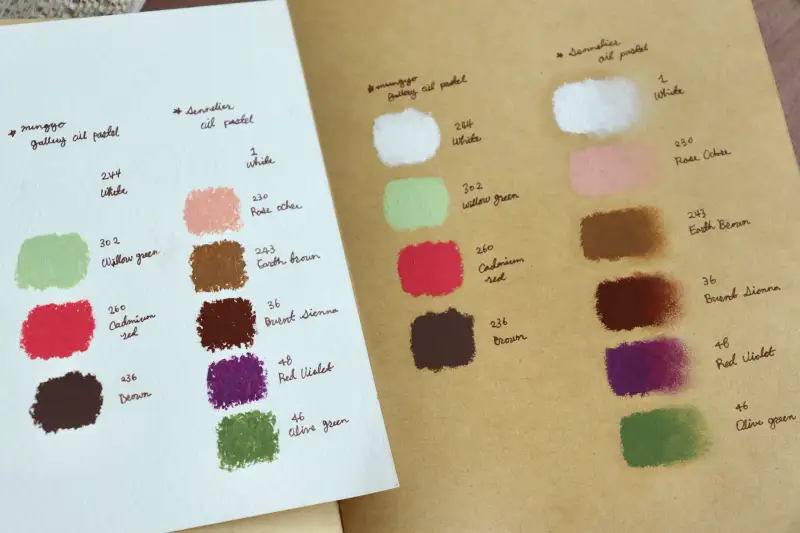 * mungyo
gallery oil pastel
244
White
302
Willow green
260
Cadmium
red
236
Brown
* Sennelier
oil pastel
1
White
230
Rose ocher
243
Earth brown
36
Burnt Sienna
48
Red Violet
46
Olive green
* mungyo
gallery oil pastel
244
White
302
Willow green
260
Cadmium
red
236
Brown
* Sennelier
oil pastel
1
White
230
Rose Ocher
243
Earth Brown
36
Burnt Sienna
48
Red Violet
46
Olive green